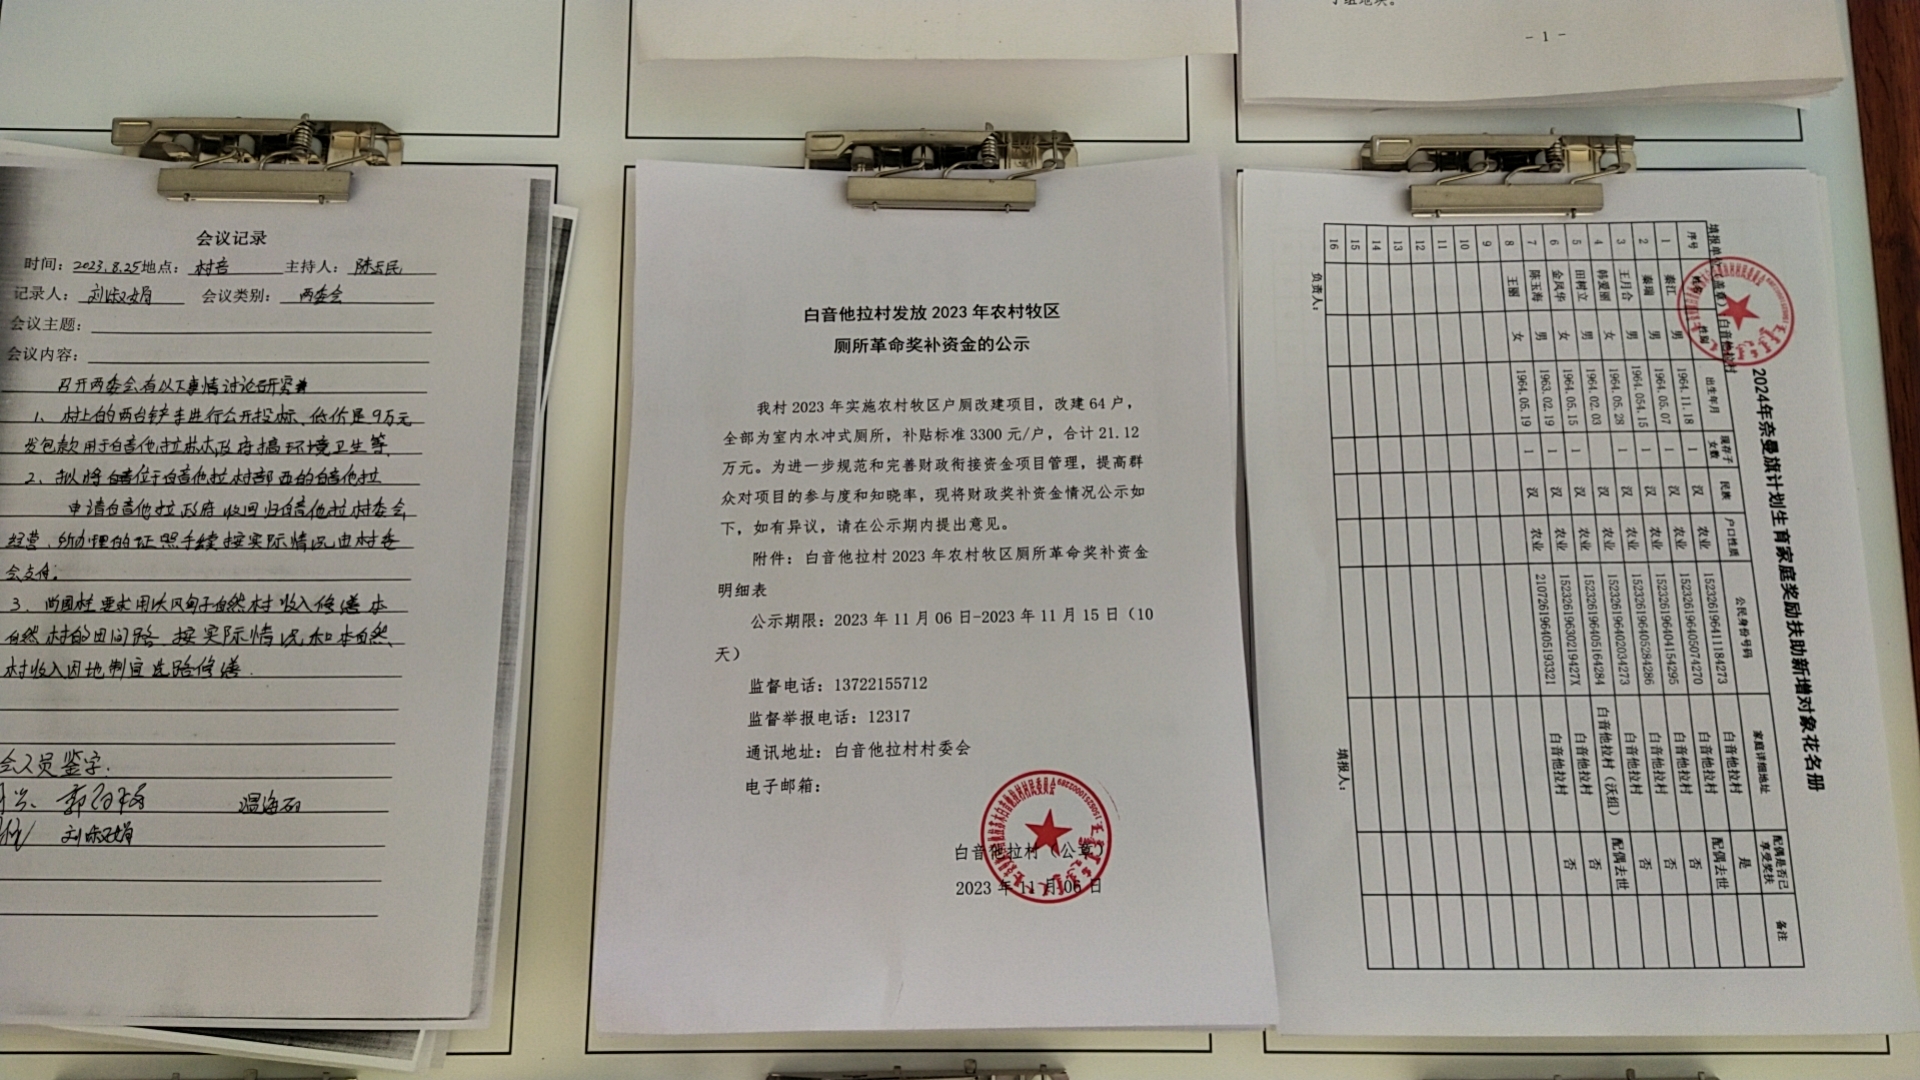 - 1 -
会议记录
时间：2023.8.25地点：村部 主持人：陈玉民
记录人：刘淑娟 会议类别：两委会
会议主题：
会议内容：
召开两委会有以下事情讨论研究
1、村上的两台铲车进行公开投标、低价是9万元
发包款用于白音他拉苏木政府搞环境卫生等，
2、拟将位于白音他拉村部西的白音他拉
申请白音他拉政府收回归白音他拉村委会
经营、所办理的证照手续按实际情况由村委
会支付。
自然村的田间路、按实际情况和本自然
村收入因地制宜选路修缮．
会人员鉴字．
刘淑娟
白音他拉村发放 2023 年农村牧区
厕所革命奖补资金的公示
我村 2023 年实施农村牧区户厕改建项目，改建 64 户，
全部为室内水冲式厕所，补贴标准 3300 元/户，合计 21.12
万元。为进一步规范和完善财政衔接资金项目管理，提高群
众对项目的参与度和知晓率，现将财政奖补资金情况公示如
下，如有异议，请在公示期内提出意见。
附件：白音他拉村 2023 年农村牧区厕所革命奖补资金
明细表
公示期限：2023 年 11 月 06 日-2023 年 11 月 15 日（10
天）
监督电话：13722155712
监督举报电话：12317
通讯地址：白音他拉村村委会
电子邮箱：
白音他拉村（公章）
2023 年 11 月 06 日
2024年奈曼旗计划生育家庭奖励扶助新增对象花名册
填报单位（盖章）白音他拉村
序号 姓名 性别 出生年月 现存子女数 民族 户口性质 公民身份号码 家庭详细地址 配偶是否已享受奖扶 备注
1 秦江 男 1964.11.18 1 汉 农业 152326196411184273 白音他拉村 是
2 秦瑞 男 1964.05.07 1 汉 农业 152326196405074270 白音他拉村 配偶去世
3 王月合 男 1964.054.15 1 汉 农业 152326196404154295 白音他拉村 否
4 韩爱丽 女 1964.05.28 1 汉 农业 152326196405284286 白音他拉村 否
5 田树立 男 1964.02.03 汉 农业 152326196402034273 白音他拉村 否
6 金凤华 女 1964.05.15 1 汉 农业 152326196405164284 白音他拉村（沃组） 配偶去世
7 陈玉海 男 1963.02.19 1 汉 农业 15232619630219427X 白音他拉村 否
8 王丽 女 1964.05.19 1 汉 农业 210726196405193321 白音他拉村 否
9
10
11
12
13
14
15
16
负责人： 填报人：